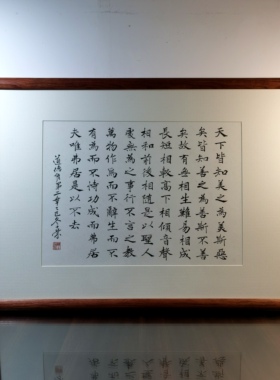 天下皆知美之為美斯惡
矣皆知善之為善斯不善
矣故有無相生難易相成
長短相較高下相傾音聲
相和前後相隨是以聖人
處無為之事行不言之教
萬物作焉而不辭生而不
有為而不恃功成而弗居
夫唯弗居是以不去
道德經第二章